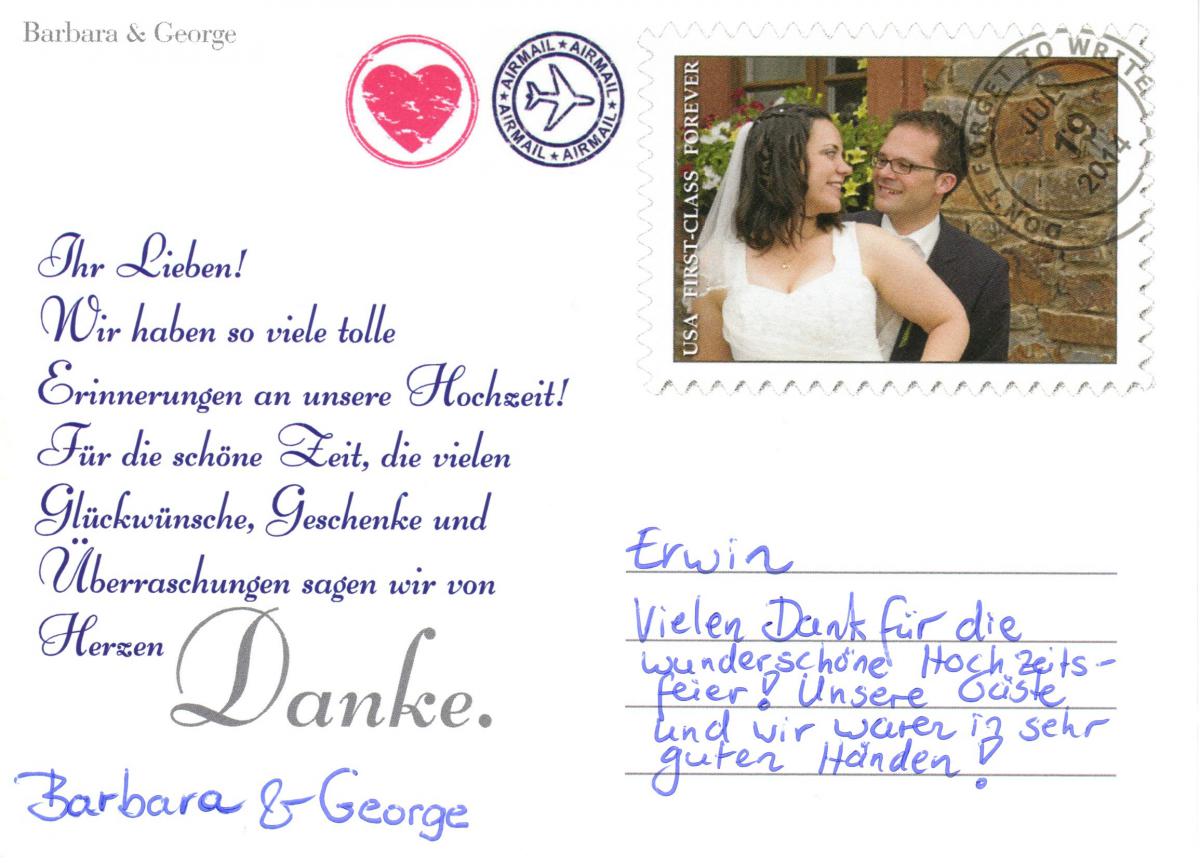 Barbara & George
AIRMAIL ★ AIRMAIL ★ AIRMAIL ★ AIRMAIL ★
USA FIRST-CLASS FOREVER
DON'T FORGET TO WRITE
JUL
19
2014
Ihr Lieben!
Wir haben so viele tolle
Erinnerungen an unsere Hochzeit!
Für die schöne Zeit, die vielen
Glückwünsche, Geschenke und
Überraschungen sagen wir von
Herzen
Danke.
Barbara & George
Erwin
Vielen Dank für die
wunderschöne Hochzeits-
feier! Unsere Gäste
und wir waren in sehr
guten Händen!